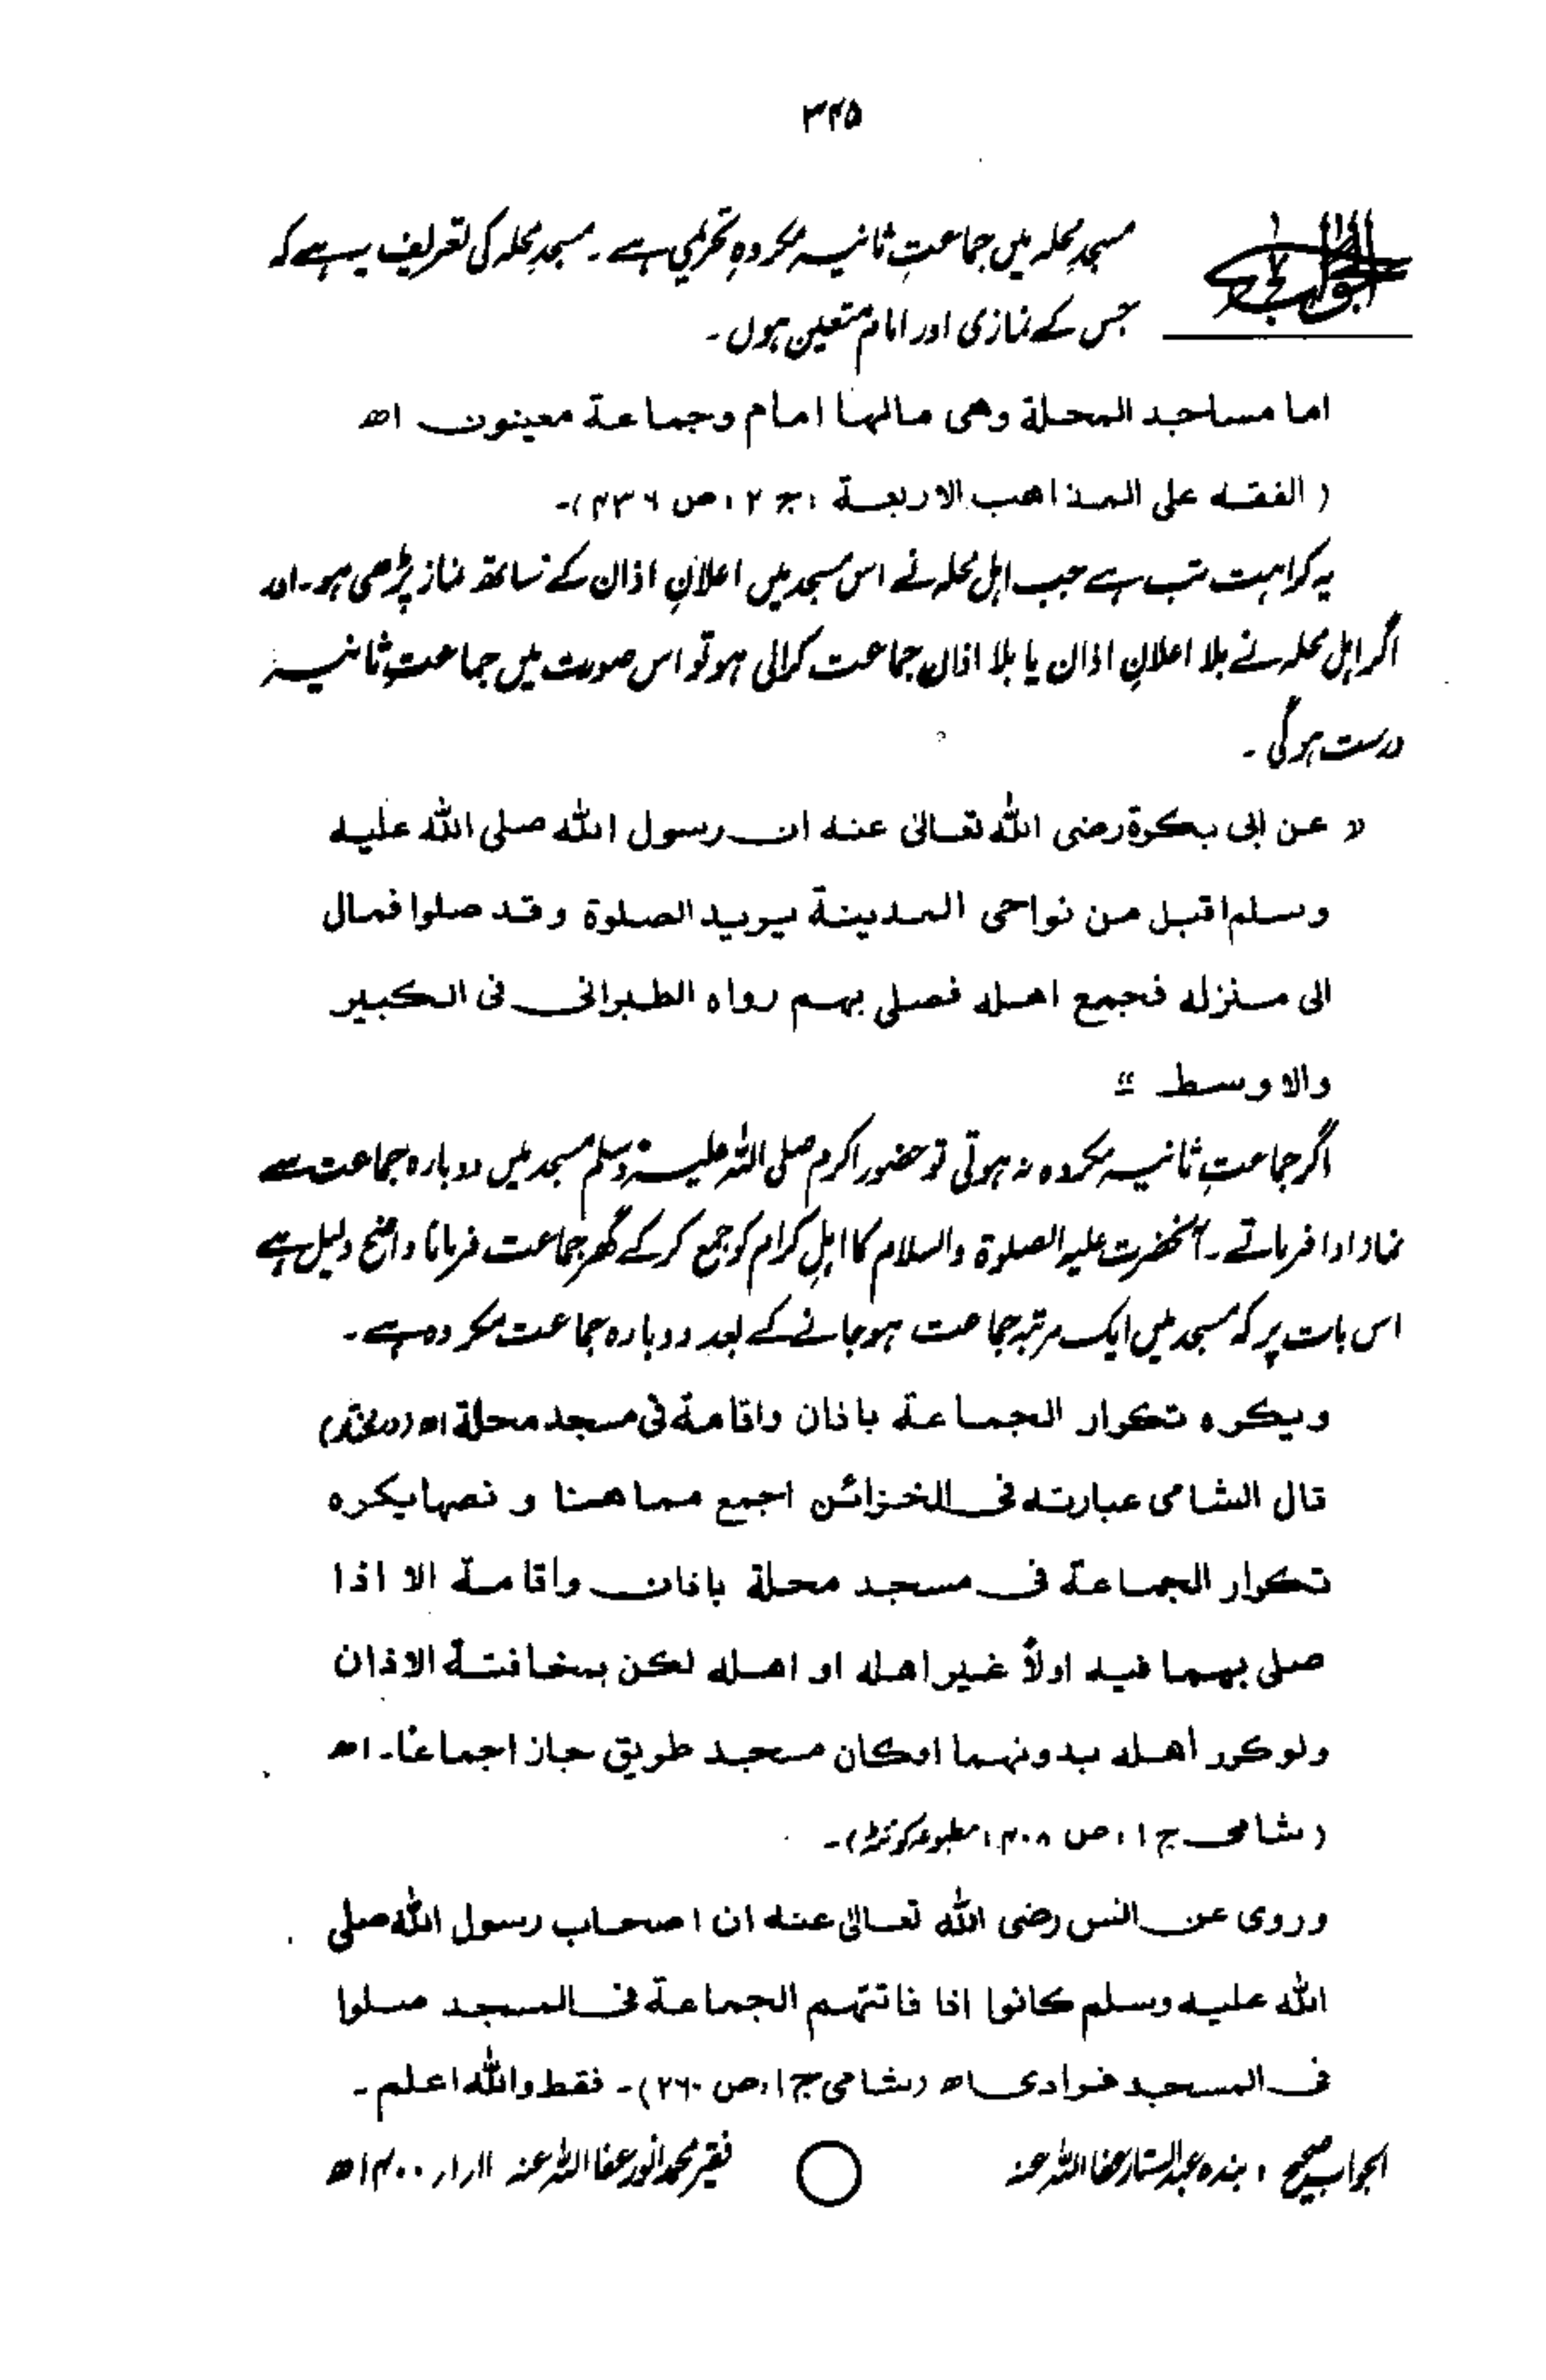 ۳۴۵
الجواب
مسجدِ محلہ میں جماعتِ ثانیہ مکروہِ تحریمی ہے۔ مسجدِ محلہ کی تعریف یہ ہے کہ
جس کے نمازی اور امام متعین ہوں۔
اما مساجد المحلة وهى مالها امام وجماعة معينون اھ
(الفقه على المذاهب الاربعة، ج ۲، ص ۴۳۶)۔
یہ کراہت تب ہے جب اہلِ محلہ نے اس مسجد میں اعلانِ اذان کے ساتھ نماز پڑھی ہو۔ اور
اگر اہلِ محلہ نے بلا اعلانِ اذان یا بلا اذان جماعت کرالی ہو تو اس صورت میں جماعتِ ثانیہ
درست ہوگی۔
” عن ابى بكرة رضى الله تعالىٰ عنه ان رسول الله صلى الله عليه
وسلم اقبل من نواحى المدينة يريد الصلوة وقد صلوا فمال
الى منزله فجمع اهله فصلى بهم رواه الطبرانى فى الكبير
والاوسط “
اگر جماعتِ ثانیہ مکروہ نہ ہوتی تو حضور اکرم صلی اللہ علیہ وسلم مسجد میں دوبارہ جماعت سے
نماز ادا فرماتے۔ آنحضرت علیہ الصلوۃ والسلام کا اہلِ کرام کو جمع کرکے گھر جماعت فرمانا واضح دلیل ہے
اس بات پر کہ مسجد میں ایک مرتبہ جماعت ہوجانے کے بعد دوبارہ جماعت مکروہ ہے۔
ويكره تكرار الجماعة باذان واقامة فى مسجد محلة اھ (درمختار)
قال الشامى عبارته فى الخزائن اجمع مما هنا و نصها يكره
تكرار الجماعة فى مسجد محلة باذان واقامة الا اذا
صلى بهما فيه اولاً غير اهله او اهله لكن بمخافتة الاذان
ولو كرر اهله بدونهما اوكان مسجد طريق جاز اجماعًا۔ اھ
(شامى ج ۱، ص ۴۰۸، مطبوعہ کوئٹہ)۔
وروى عن انس رضى الله تعالىٰ عنه ان اصحاب رسول الله صلى
الله عليه وسلم كانوا اذا فاتتهم الجماعة فى المسجد صلوا
فى المسجد فرادى اھ (شامى ج ۱، ص ۲۶۰)۔ فقط والله اعلم۔
الجواب صحیح، بندہ عبدالستار عفا اللہ عنہ
فقیر محمد انور عفا اللہ عنہ ۱۱/۱/۱۴۰۰ھ